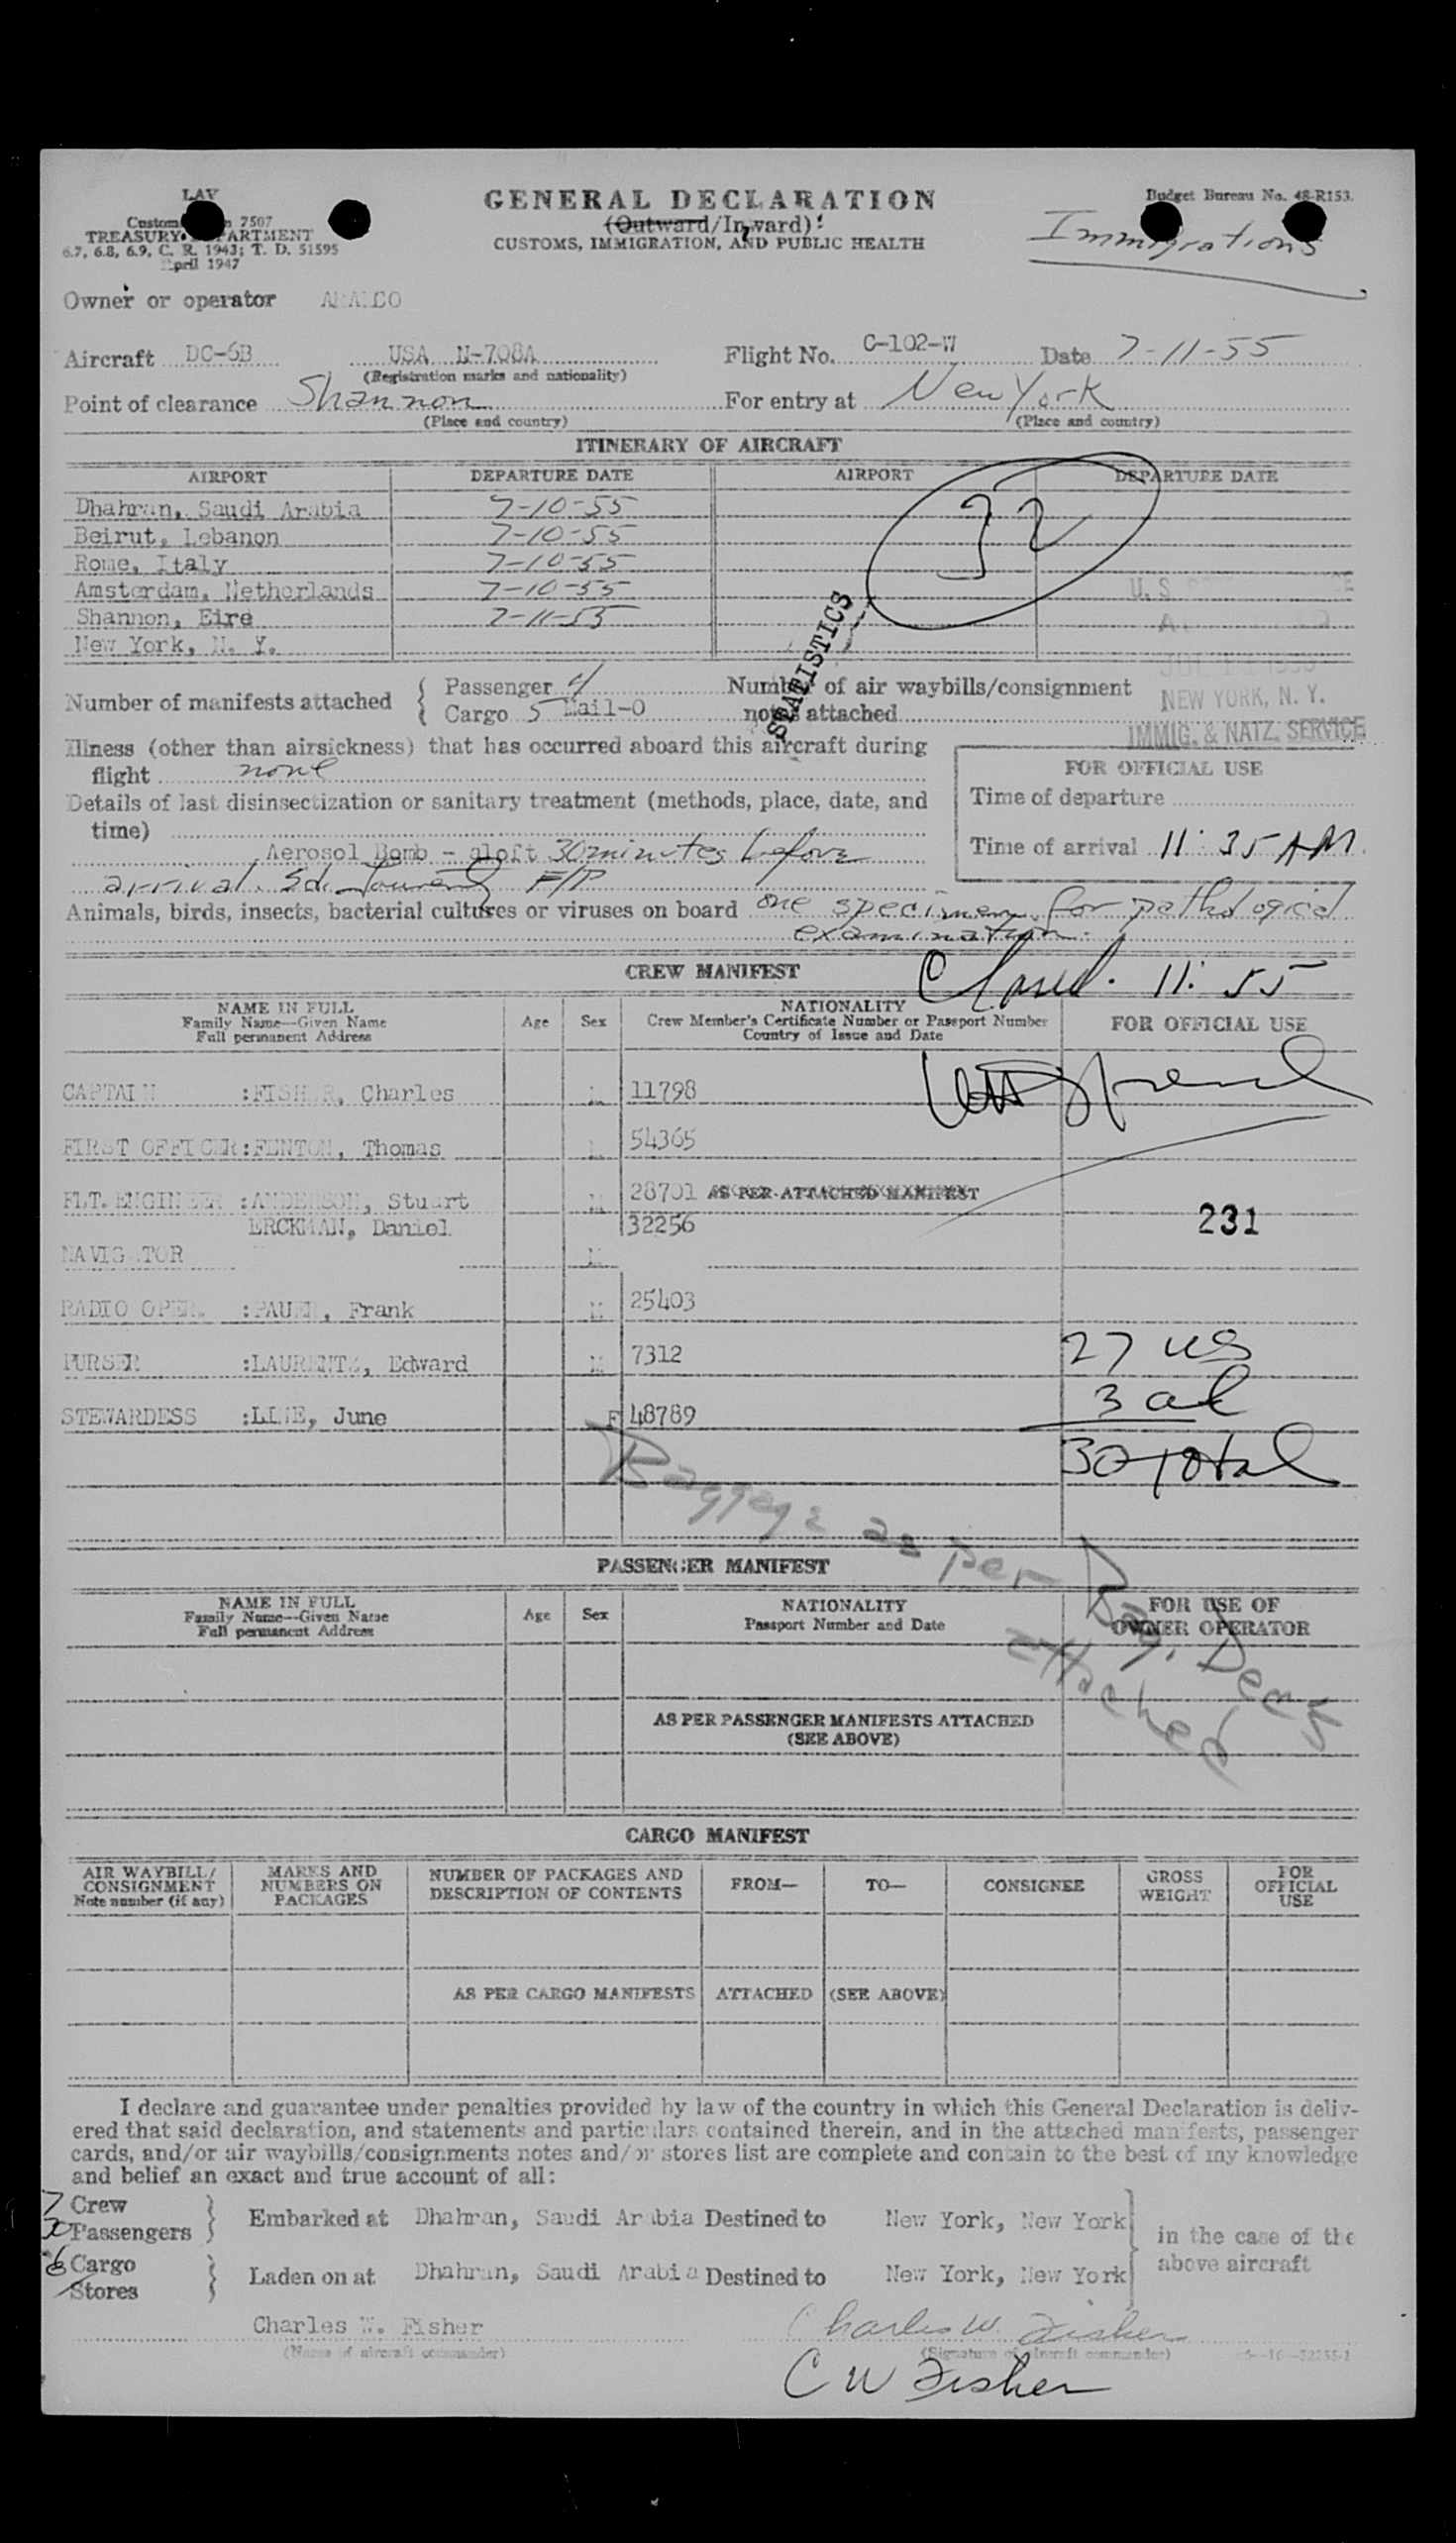 LAV
GENERAL DECLARATION
Budget Bureau No. 48-R153.
Customs 7507
(Outward/Inward)
Immigrations
TREASURY DEPARTMENT
CUSTOMS, IMMIGRATION, AND PUBLIC HEALTH
6.7, 6.8, 6.9, C. R. 1943; T. D. 51595
April 1947
Owner or operator ARAMCO
Aircraft DC-6B USA N-708A Flight No. C-102-W Date 7-11-55
(Registration marks and nationality)
Point of clearance Shannon For entry at New York
(Place and country) (Place and country)
ITINERARY OF AIRCRAFT
AIRPORT DEPARTURE DATE AIRPORT DEPARTURE DATE
Dhahran, Saudi Arabia 7-10-55
Beirut, Lebanon 7-10-55
Rome, Italy 7-10-55
Amsterdam, Netherlands 7-10-55
Shannon, Eire 7-11-55
New York, N. Y.
U.S.
STATISTICS
NEW YORK, N. Y.
IMMIG. & NATZ. SERVICE
Number of manifests attached { Passenger 4 Number of air waybills/consignment
Cargo 5 Mail-0 notes attached
Illness (other than airsickness) that has occurred aboard this aircraft during
flight none
FOR OFFICIAL USE
Details of last disinsectization or sanitary treatment (methods, place, date, and
time)
Time of departure
Aerosol Bomb - aloft 30 minutes before
Time of arrival 11:35 AM
arrival. Sd. F/P
Animals, birds, insects, bacterial cultures or viruses on board one specimen for pathological
examination.
CREW MANIFEST
Closed. 11:55
NAME IN FULL
Family Name—Given Name
Full permanent Address
Age Sex
NATIONALITY
Crew Member's Certificate Number or Passport Number
Country of Issue and Date
FOR OFFICIAL USE
CAPTAIN :FISHER, Charles 11798
FIRST OFFICER:FENTON, Thomas 54365
FLT. ENGINEER :ANDERSON, Stuart M 28701 AS PER ATTACHED MANIFEST
ERCKMAN, Daniel 32256
231
NAVIGATOR M
RADIO OPER. :PAUER, Frank M 25403
PURSER :LAURENTZ, Edward M 7312
27 US
3 al
STEWARDESS :LINE, June F 48789
30 total
Baggage as per Bag. Decls
attached
PASSENGER MANIFEST
NAME IN FULL
Family Name—Given Name
Full permanent Address
Age Sex
NATIONALITY
Passport Number and Date
FOR USE OF
OWNER OPERATOR
AS PER PASSENGER MANIFESTS ATTACHED
(SEE ABOVE)
CARGO MANIFEST
AIR WAYBILL/
CONSIGNMENT
Note number (if any)
MARKS AND
NUMBERS ON
PACKAGES
NUMBER OF PACKAGES AND
DESCRIPTION OF CONTENTS
FROM—
TO—
CONSIGNEE
GROSS
WEIGHT
FOR
OFFICIAL
USE
AS PER CARGO MANIFESTS ATTACHED (SEE ABOVE)
I declare and guarantee under penalties provided by law of the country in which this General Declaration is deliv-
ered that said declaration, and statements and particulars contained therein, and in the attached manifests, passenger
cards, and/or air waybills/consignments notes and/or stores list are complete and contain to the best of my knowledge
and belief an exact and true account of all:
7 Crew
30 Passengers } Embarked at Dhahran, Saudi Arabia Destined to New York, New York
in the case of the
above aircraft
Cargo
Stores } Laden on at Dhahran, Saudi Arabia Destined to New York, New York
Charles W. Fisher Charles W. Fisher
(Name of aircraft commander) (Signature of aircraft commander)
C W Fisher